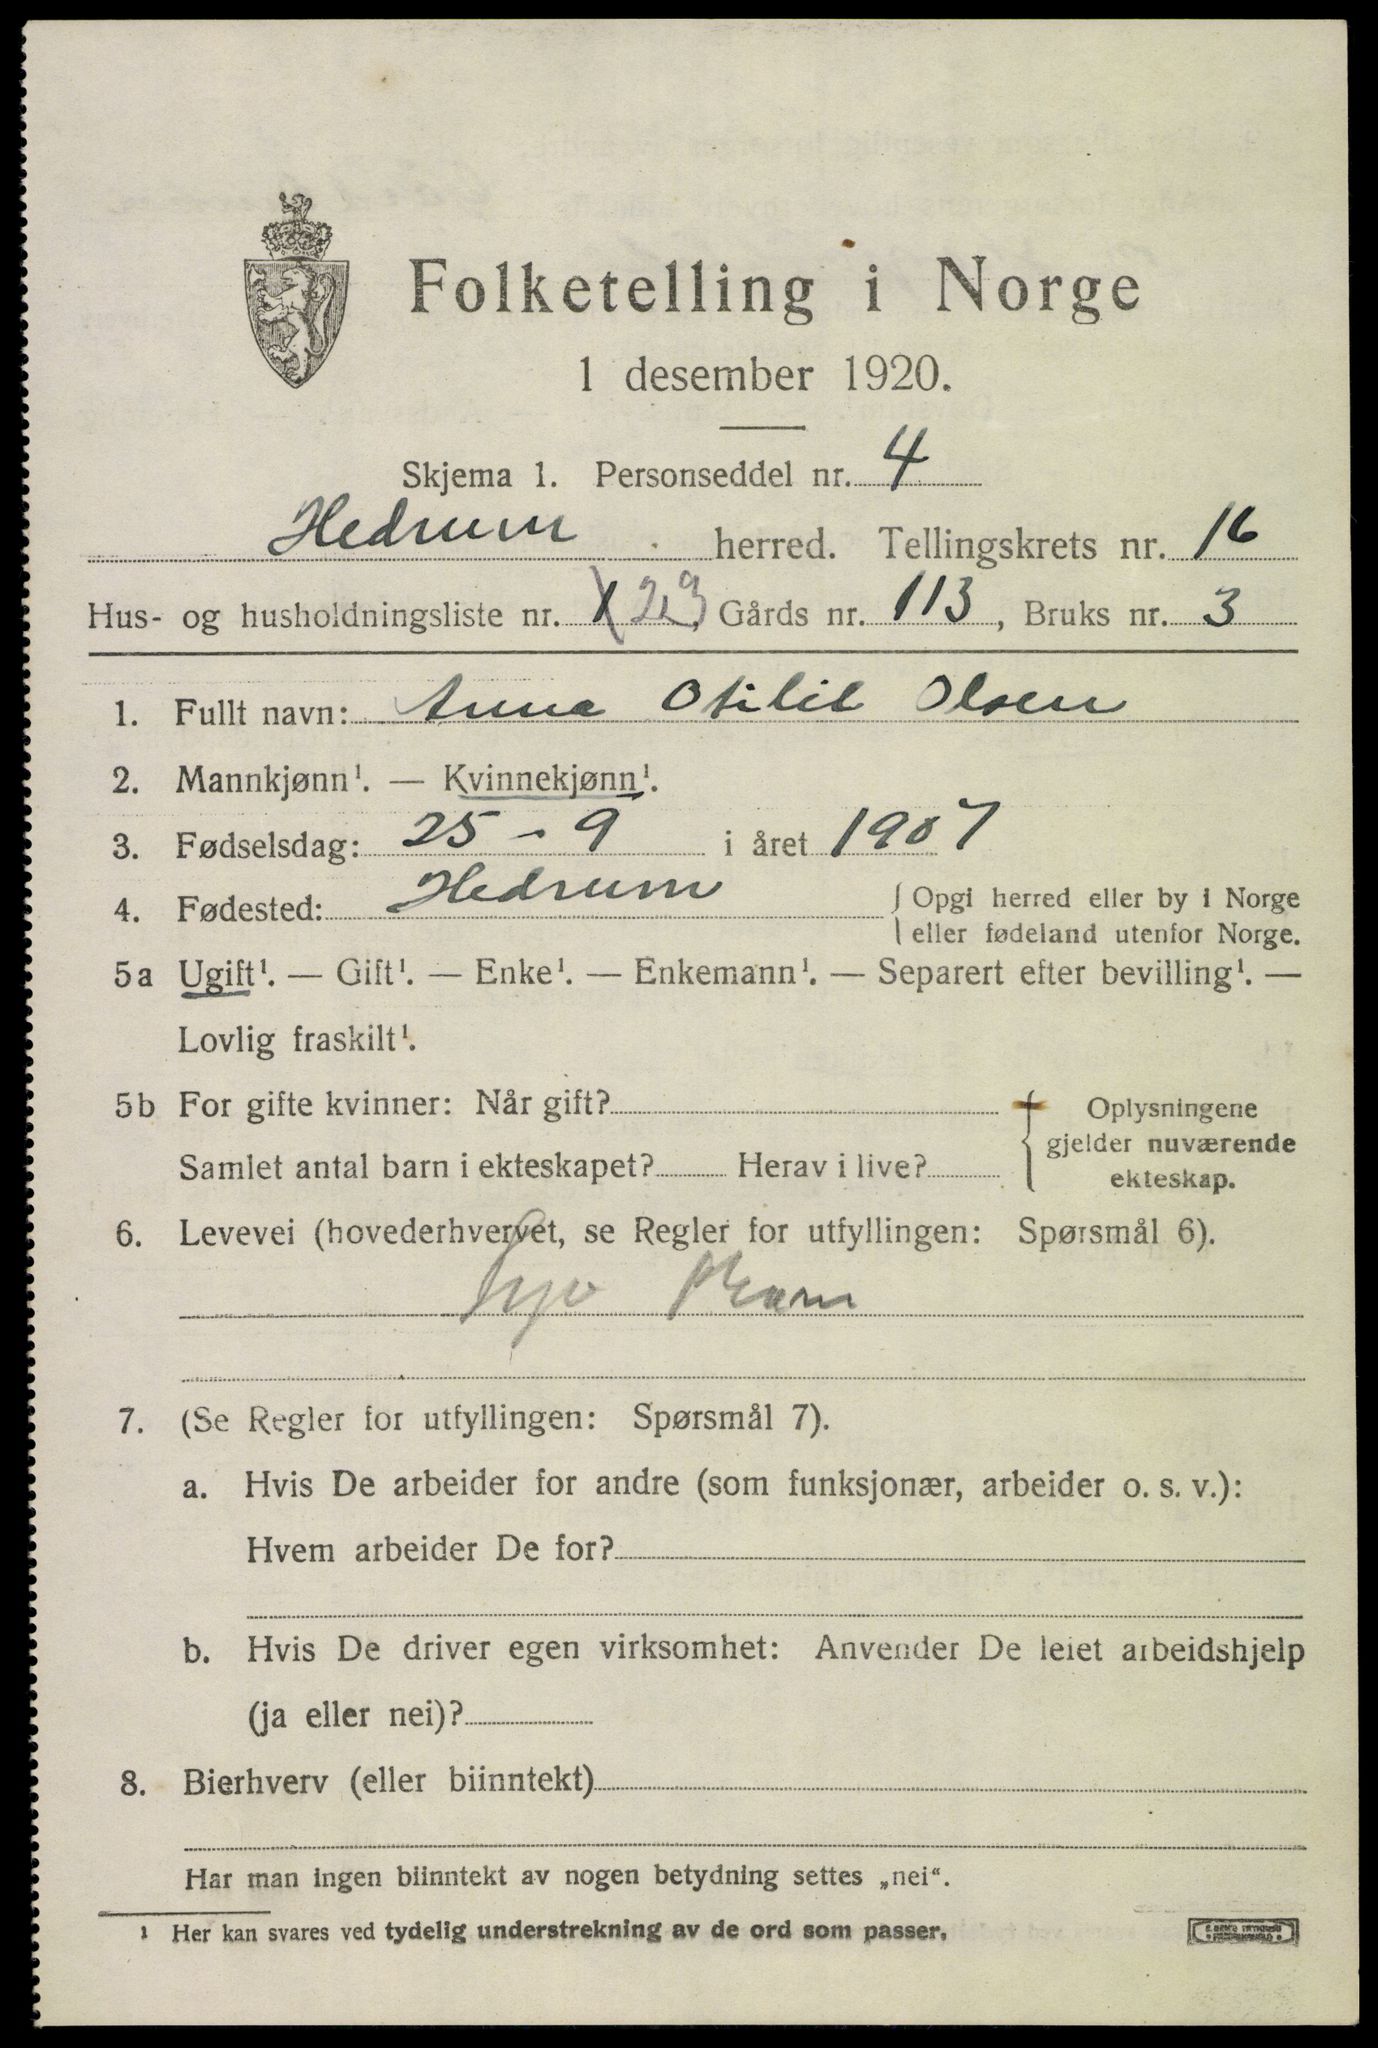 Folketelling i Norge
1 desember 1920.
Skjema 1. Personseddel nr. 4
Hedrum herred. Tellingskrets nr. 16
Hus- og husholdningsliste nr. 1 Gårds nr. 113, Bruks nr. 3
1. Fullt navn: Anna Otilie Olsen
2. Mannkjønn¹. — Kvinnekjønn¹.
3. Fødselsdag: 25 - 9 i året 1907
4. Fødested: Hedrum { Opgi herred eller by i Norge
eller fødeland utenfor Norge.
5a Ugift¹. — Gift¹. — Enke¹. — Enkemann¹. — Separert efter bevilling¹. —
Lovlig fraskilt¹.
5b For gifte kvinner: Når gift?
Samlet antal barn i ekteskapet? Herav i live?
{ Oplysningene
gjelder nuværende
ekteskap.
6. Levevei (hovederhvervet, se Regler for utfyllingen: Spørsmål 6).
7. (Se Regler for utfyllingen: Spørsmål 7).
a. Hvis De arbeider for andre (som funksjonær, arbeider o. s. v.):
Hvem arbeider De for?
b. Hvis De driver egen virksomhet: Anvender De leiet arbeidshjelp
(ja eller nei)?
8. Bierhverv (eller biinntekt)
Har man ingen biinntekt av nogen betydning settes „nei“.
¹ Her kan svares ved tydelig understrekning av de ord som passer.